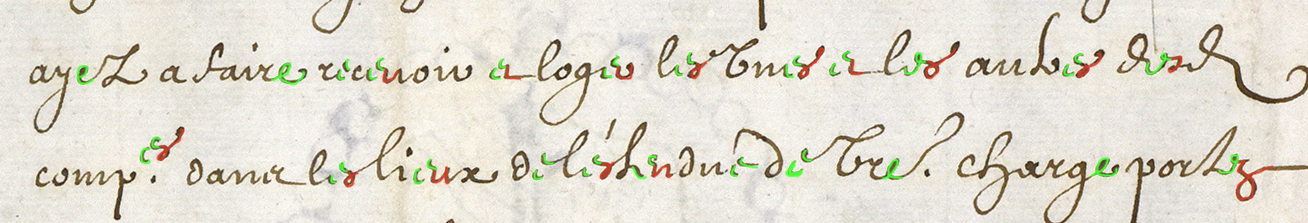 ayez a faire recevoir et loger les vnes et les autres desd
comp.es dans les lieux de lestendue de vre. charge portez